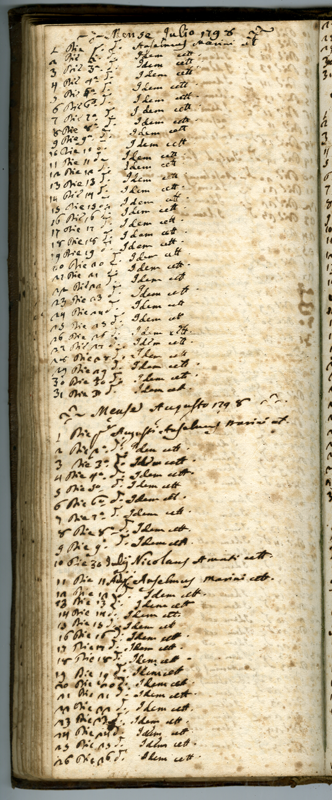 Mense Julio 1798
1 Die 1 d. Anselmus Marini ctt
2 Die 2 d. Idem ctt.
3 Die 3 d. Idem ctt.
4 Die 4 d. Idem ctt.
5 Die 5 d. Idem ctt.
6 Die 6 d. Idem ctt.
7 Die 7 d. Idem ctt.
8 Die 8 d. Idem ctt.
9 Die 9 d. Idem ctt.
10 Die 10 d. Idem ctt
11 Die 11 d. Idem ctt
12 Die 12 d. Idem ctt
13 Die 13 d. Idem ctt.
14 Die 14 d. Idem ctt.
15 Die 15 d. Idem ctt.
16 Die 16 d. Idem ctt.
17 Die 17 d. Idem ctt.
18 Die 18 d. Idem ctt.
19 Die 19 d. Idem ctt.
20 Die 20 d. Idem ctt.
21 Die 21 d. Idem ctt.
22 Die 22 d. Idem ctt.
23 Die 23 d. Idem ctt.
24 Die 24 d. Idem ctt
25 Die 25 d. Idem ctt
26 Die 26 d. Idem ctt
27 Die 27 d. Idem ctt
28 Die 28 d. Idem ctt
29 Die 29 d. Idem ctt.
30 Die 30 d. Idem ctt.
31 Die 31 d. Idem ctt.
Mense Augusto 1798
1 Die pa Augusti Anselmus Marini ctt.
2 Die 2 d. Idem ctt.
3 Die 3 d. Idem ctt.
4 Die 4 d. Idem ctt.
5 Die 5 d. Idem ctt.
6 Die 6 d. Idem ctt.
7 Die 7 d. Idem ctt.
8 Die 8 d. Idem ctt.
9 Die 9 d. Idem ctt
10 Die 30 Julij Nicolaus Amati ctt.
11 Die 11 Aug. Anselmus Marini ctt.
12 Die 12 d. Idem ctt.
13 Die 13 d. Idem ctt
14 Die 14 d. Idem ctt.
15 Die 15 d. Idem ctt
16 Die 16 d. Idem ctt.
17 Die 17 d. Idem ctt.
18 Die 18 d. Idem ctt.
19 Die 19 d. Idem ctt
20 Die 20 d. Idem ctt.
21 Die 21 d. Idem ctt.
22 Die 22 d. Idem ctt.
23 Die 23 d. Idem ctt.
24 Die 24 d. Idem ctt
25 Die 25 d. Idem ctt
26 Die 26 d. Idem ctt.